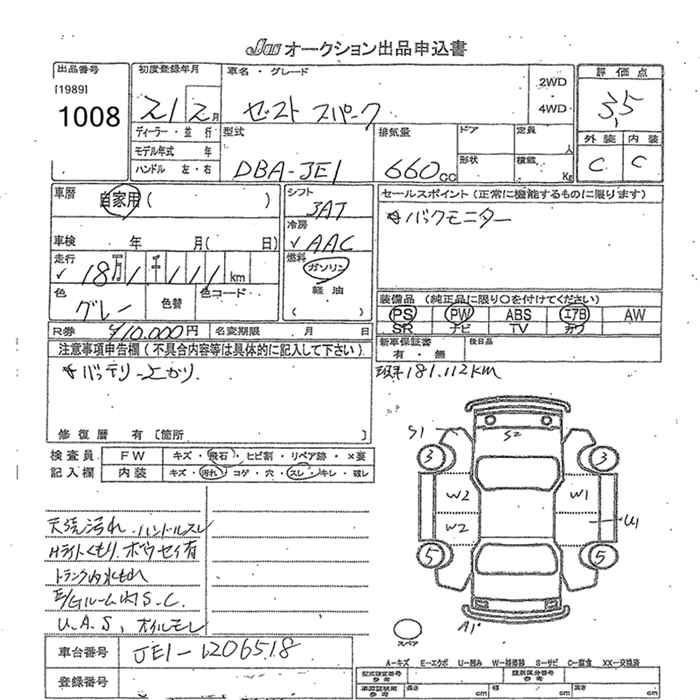 JU オークション出品申込書
出品番号
[1989]
1008
初度登録年月
21 2月
ディーラー・並行
モデル年式 年
ハンドル 左・右
車名・グレード
ゼスト スパーク
2WD
4WD
評価点
3.5
外装 内装
C C
型式
DBA-JE1
排気量
660cc
ドア
形状
定員
人
積載
Kg
車歴
自家用( )
車検 年 月( 日)
走行
✓ 18万1千111km
色
グレー
色替
色コード
R券 ¥10,000円
名変期限 月 日
シフト
3AT
冷房
✓ AAC
燃料
ガソリン
軽油
( )
セールスポイント(正常に機能するものに限ります)
バックモニター
装備品 (純正品に限り○を付けてください)
PS PW ABS エアB AW
SR ナビ TV カワ
新車保証書
有・無
後日品
注意事項申告欄(不具合内容等は具体的に記入して下さい)
バッテリー上がり.
修復歴 有[箇所
181,112km
検査員
記入欄
FW キズ・飛石・ヒビ割・リペア跡・×要
内装 キズ・汚れ・コゲ・穴・スレ・キレ・破レ
天井汚れ.ハンドルスレ
Hライトくもり.ボウセイ有
トランク内水もれ
E/Gルーム内S.C.
U.A.S、オイルモレ
S1
S2
3
3
W2
W1
W2
U1
5
5
A1
スペア
車台番号
JE1-1206518
登録番号
A-キズ E-エクボ U-凹み W-補修跡 S-サビ C-腐食 XX-交換済
型式指定番号
参考
類別区分番号
参考
車検証状態
参考
長さ
cm
幅
cm
高さ
cm